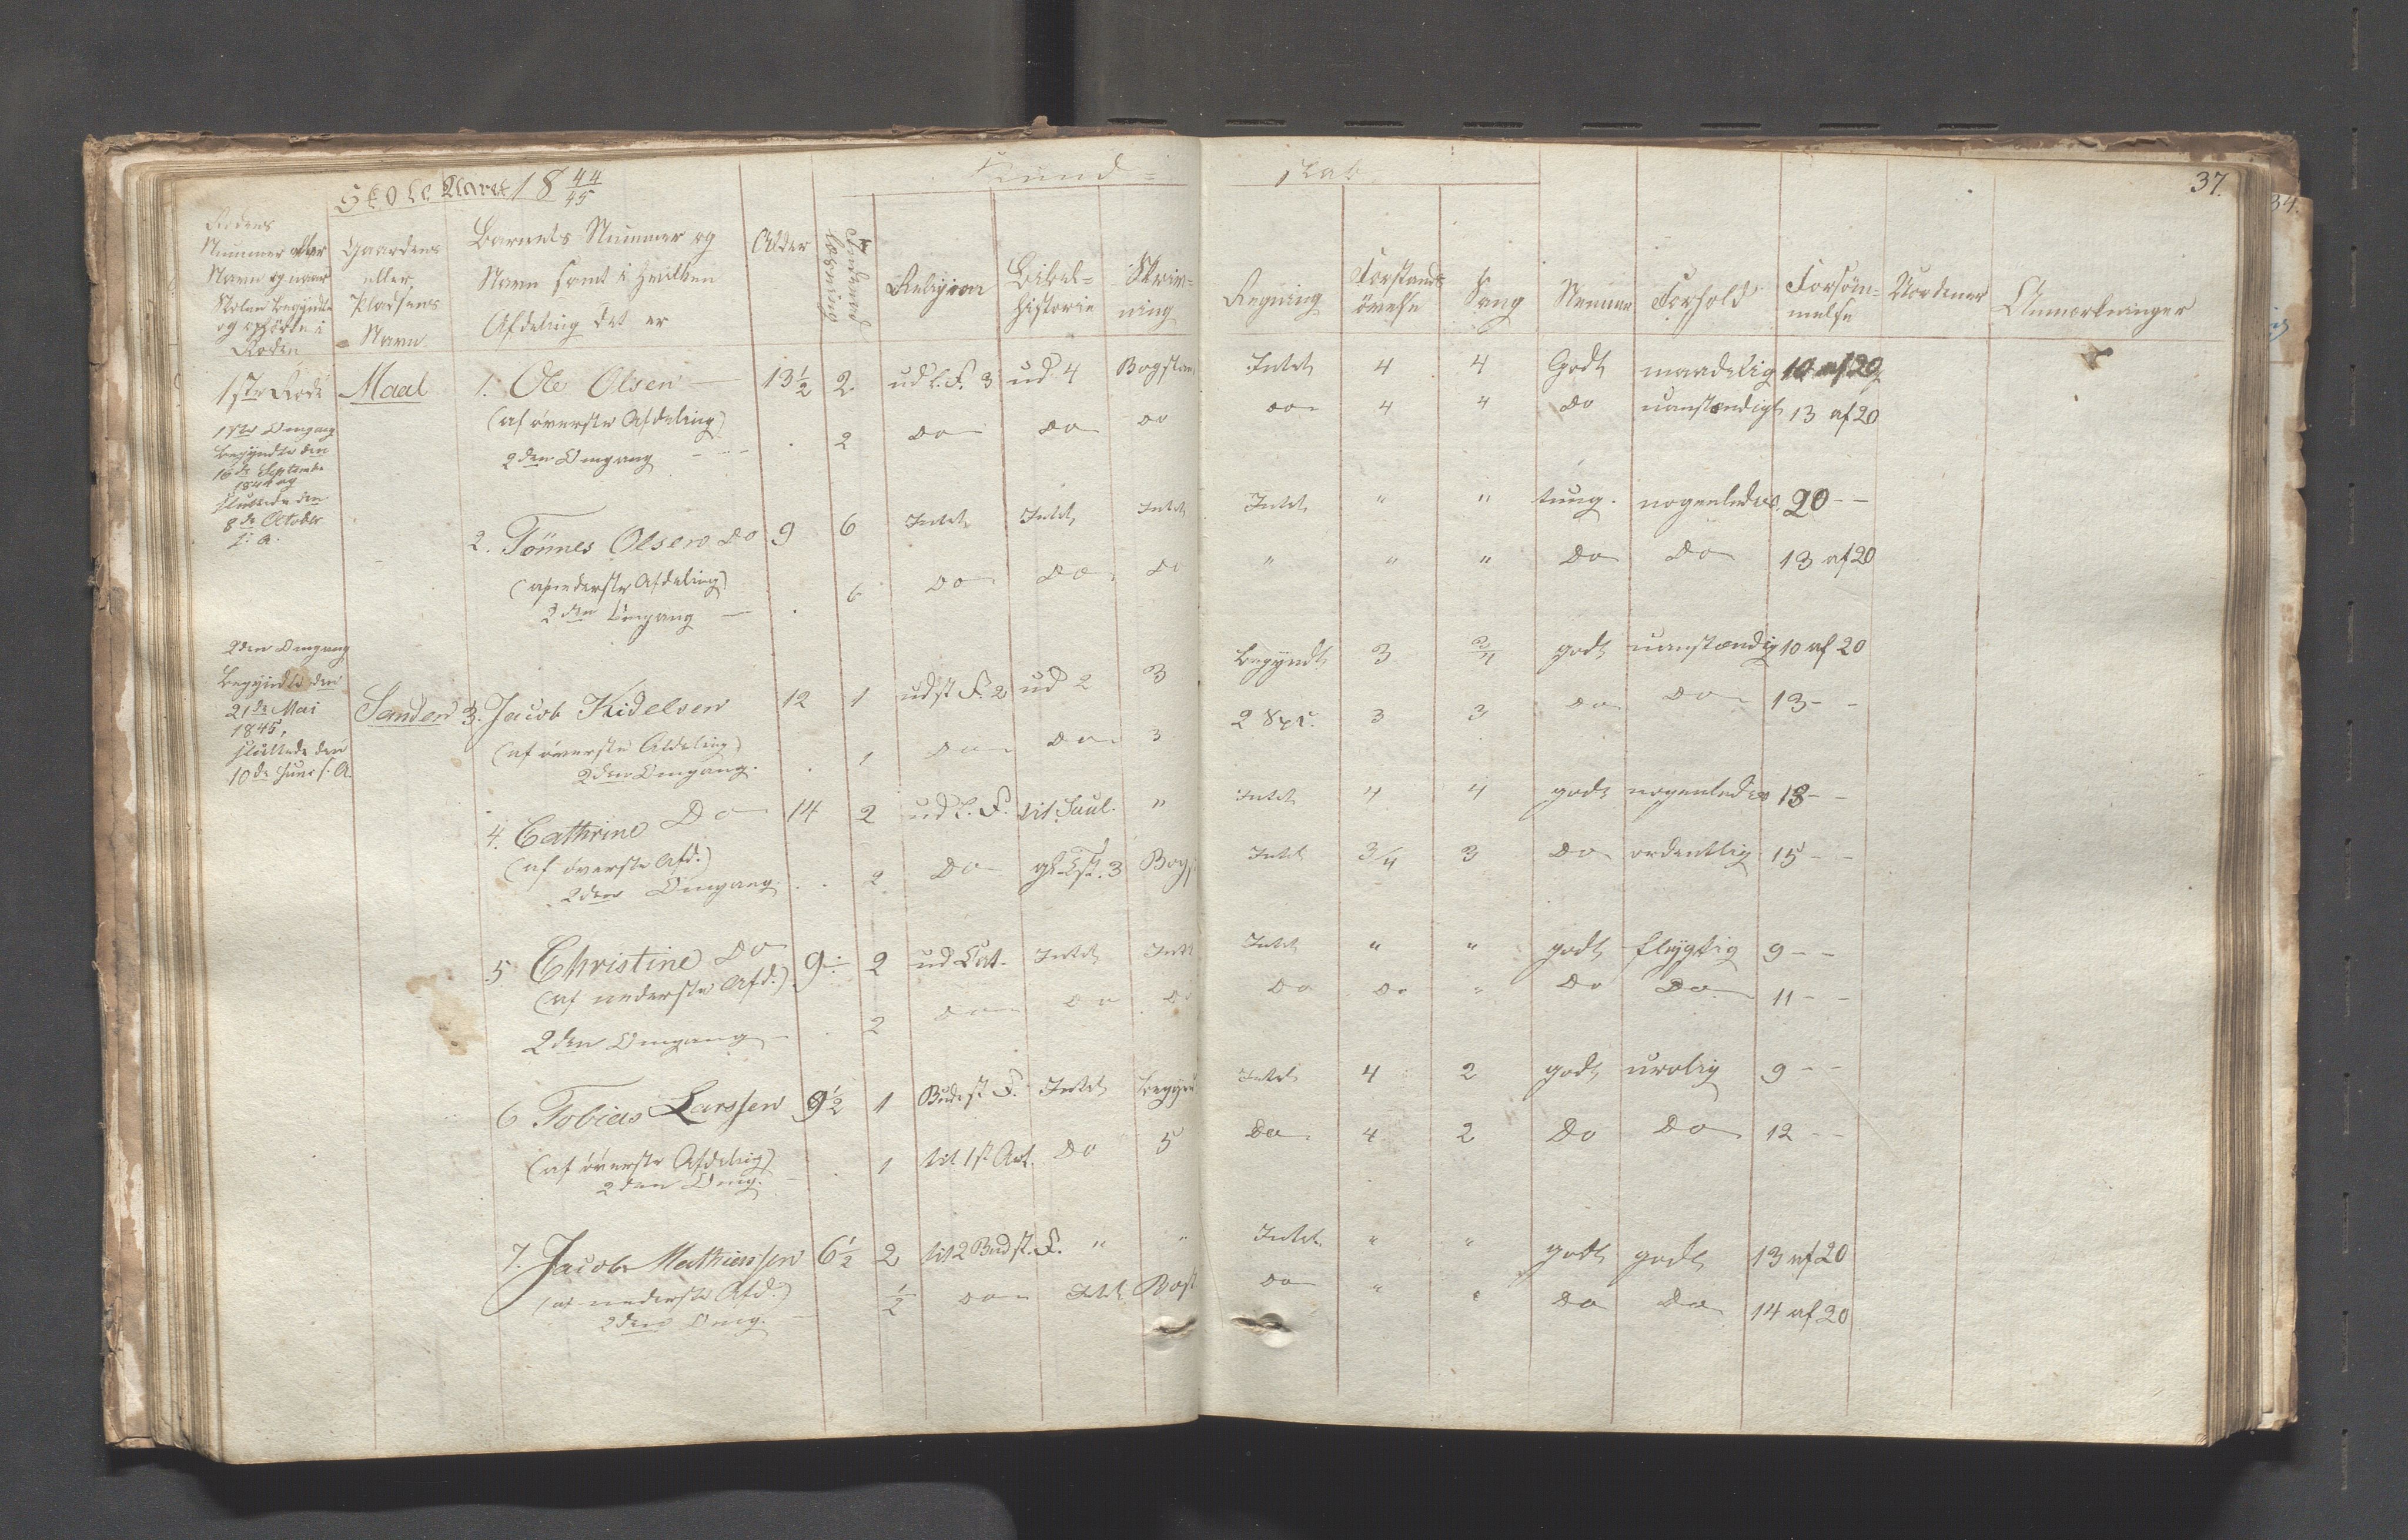 Skole Aaret 18 44/45
Kund=
skab
37.
34.
Rodens Nummer eller Navn og naar Skolen begyndte og ophörte i Roden
Gaardens eller Pladsens Navn
Barnets Nummer og Navn samt i hvilken Afdeling det er
Alder
Indenad Læsning
Religion
Bibel= historie
Skriv= ning
Regning
Forstands övelse
Sang
Nemme
Forhold
Forsöm= melse
Uordener
Anmærkninger
1ste Rode Maal 1. Ole Olsen — 13½ 2. ud l. F. 3 ud 4 Bogstav. Intet 4 4 Godt maadelig 10 af 20
(af överste Afdeling)
2den Omgang - - - 2 Do Do Do Do 4 4 Do uanstændigt 13 af 20
1ste Omgang
begyndte den
16de Septembr
1844 og
sluttede den
8de October
s. A.
2. Tönnes Olsen Do 9 6 Intet Intet Intet Intet " " tung. nogenledes 20 - -
(af nederste Afdeling)
2den Omgang — 6 Do Do Do " " " Do Do 13 af 20
2den Omgang
begyndte den
21de Mai
1845,
sluttede den
10de Juni s. A.
Sanden 3. Jacob Kidelsen 12 1 udst F. 2 ud 2 3 begyndt 3 3/4 godt uanstændig 10 af 20
(af överste Afdeling)
2den Omgang. 1 Do Do 3 2 Spc. 3 3 Do Do 13 - -
4. Cathrine Do 14 2 ud l. F. til Saul. " Intet 4 4 godt nogenledes 18 - -
(af överste Afd.)
2den Omgang. 2 Do 3 Bogs Intet 3/4 3 Do ordentlig 15 - -
5 Christine Do 9 2 ud Cat. Intet Intet Intet " " godt flygtig 9 - -
(af nederste Afd.)
2den Omgang - 2 Do Do Do Do Do " Do Do 11 - -
6 Tobias Larssen 9½ 1 Budst F. Intet begynd Intet 4 2 godt urolig 9 - -
(af överste Afdeling)
2den Omg. - 1 til 1st Art. Do 5 Do 4 2 Do Do 12 - -
7. Jacob Mathiassen 6½ 2 til 2 Budst. F. " " Intet " " godt godt 13 af 20
(af nederste Afd.)
2den Omg. - ½ Do Intet Bogst Do " " Do Do 14 af 20